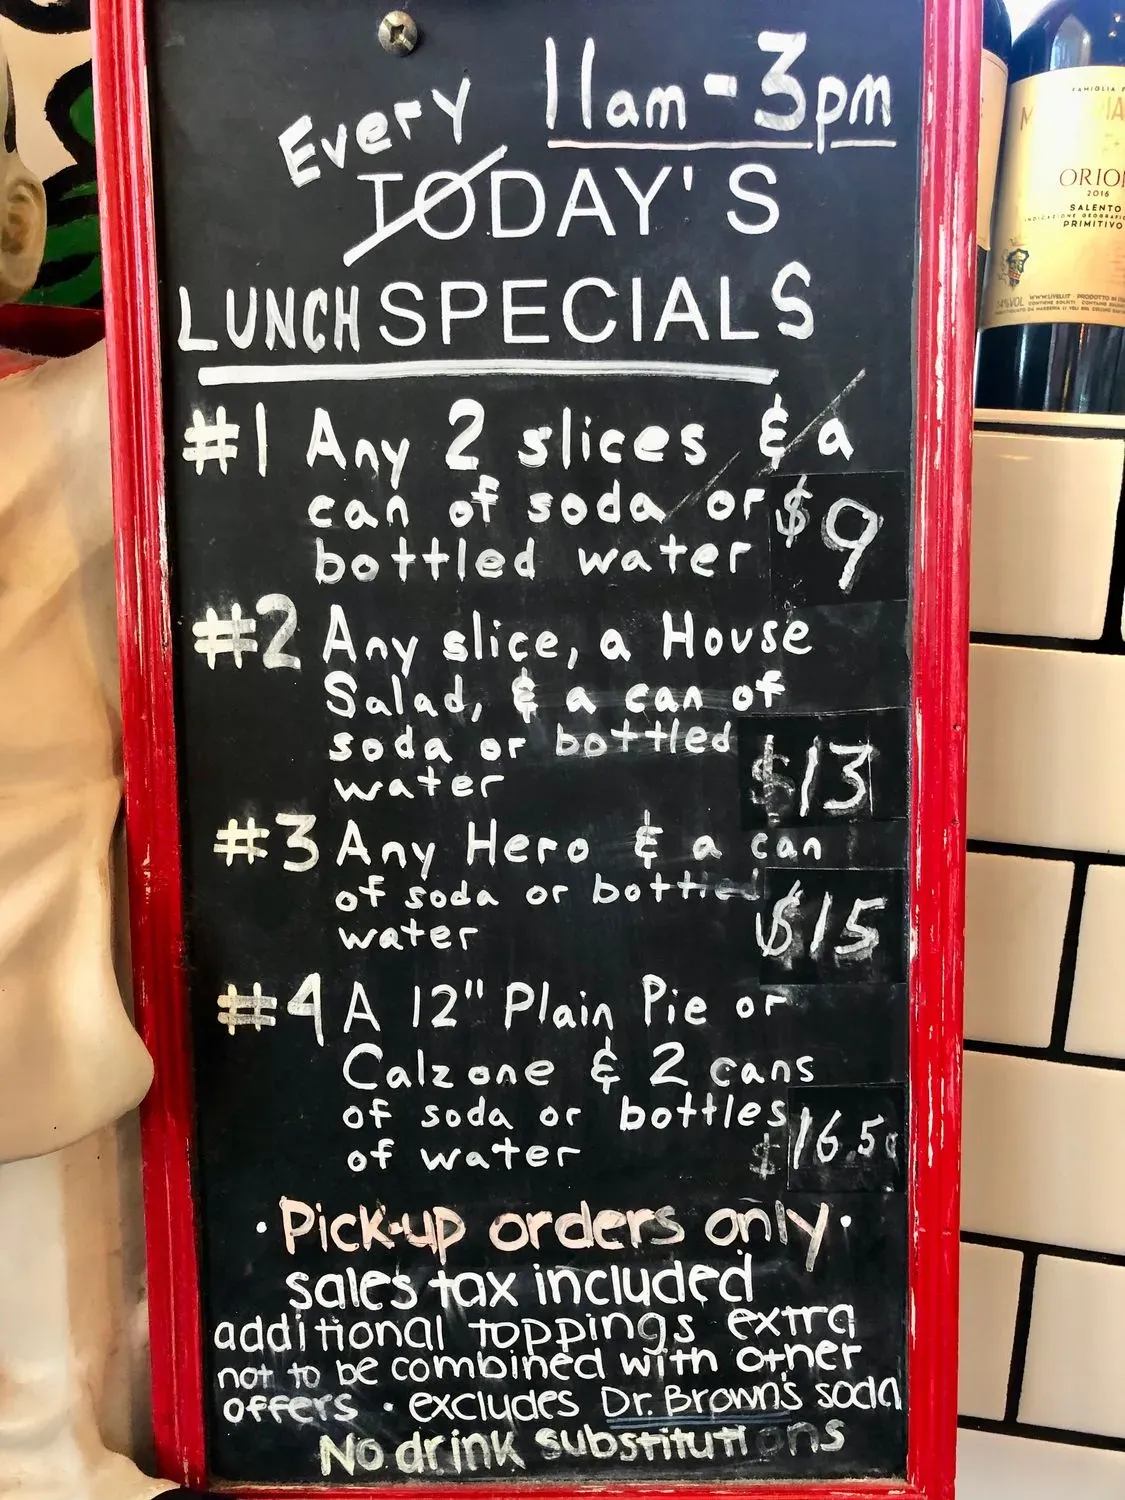 11am-3pm
Every
TODAY'S
LUNCH SPECIALS
#1 Any 2 slices & a
can of soda or $9
bottled water
#2 Any slice, a House
Salad, & a can of
soda or bottled
water $13
#3 Any Hero & a can
of soda or bottled
water $15
#4 A 12" Plain Pie or
Calzone & 2 cans
of soda or bottles
of water $16.50
· Pick-up orders only ·
sales tax included
additional toppings extra
not to be combined with other
offers · excludes Dr. Brown's soda
No drink substitutions
FAMIGLIA
2016
SALENTO
PRIMITIVO